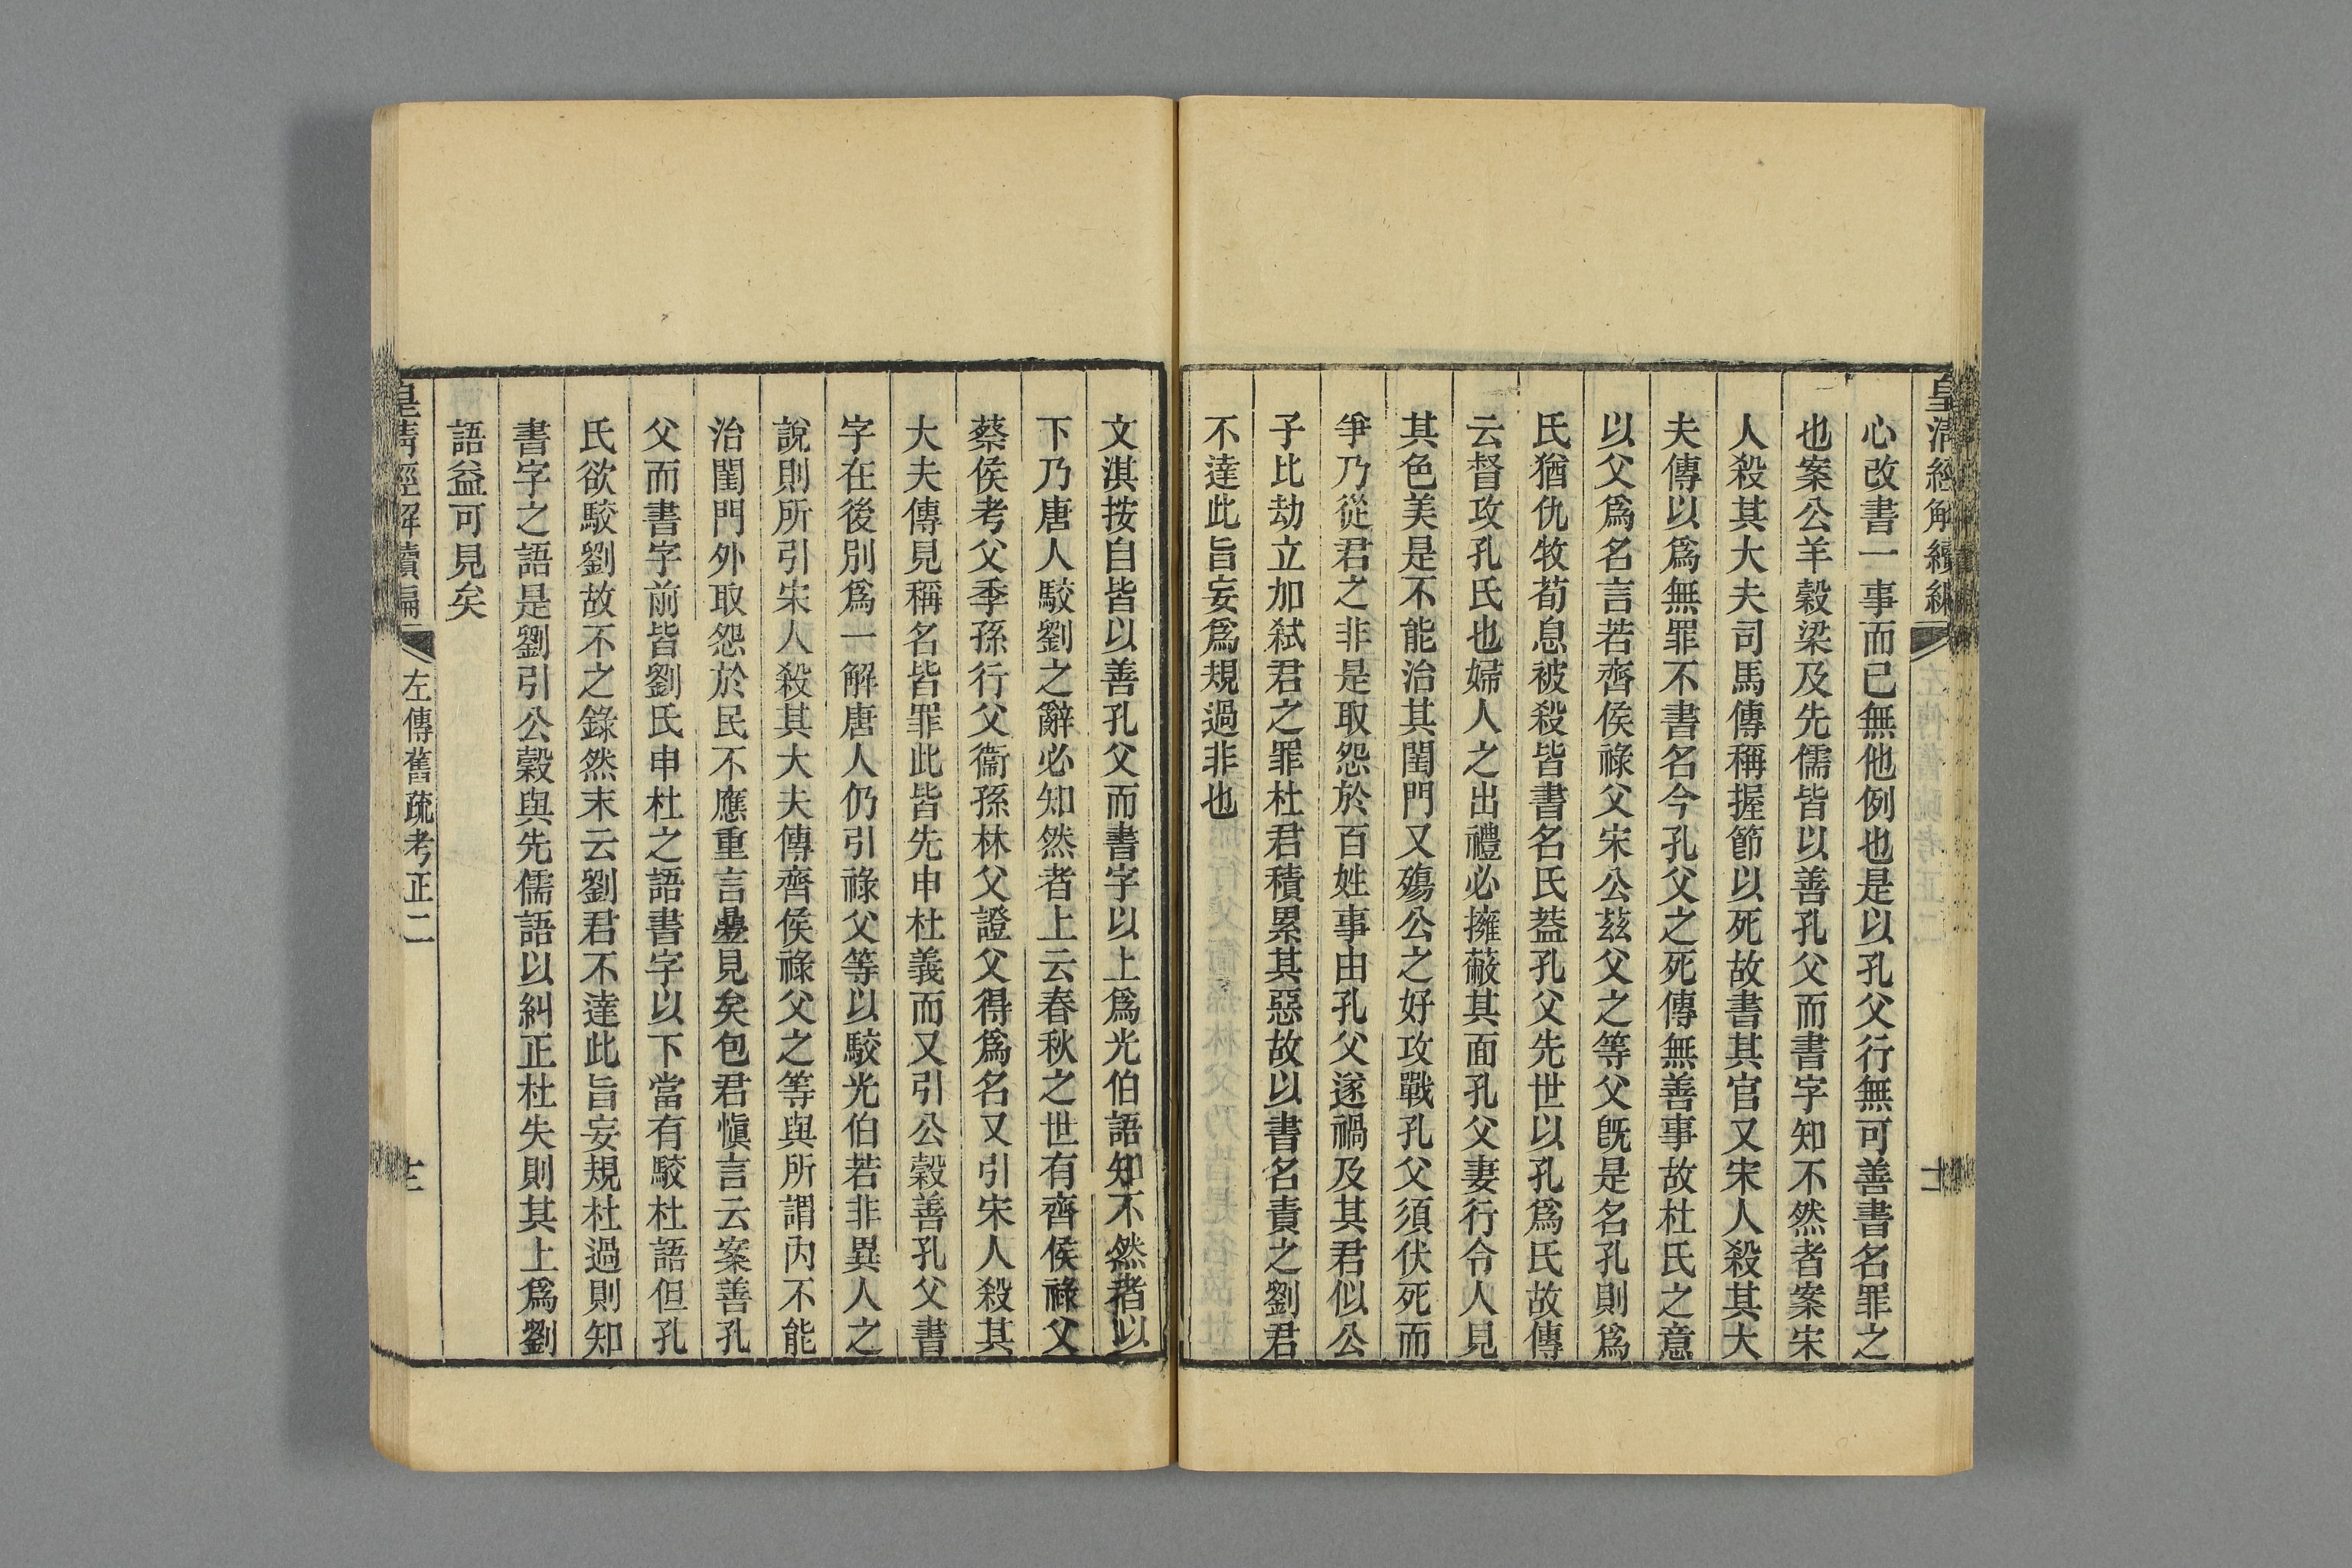 皇清經解續編
心改書一事而已無他例也是以孔父行無可善書名罪之
也案公羊穀梁及先儒皆以善孔父而書字知不然者案宋
人殺其大夫司馬傳稱握節以死故書其官又宋人殺其大
夫傳以爲無罪不書名今孔父之死傳無善事故杜氏之意
以父爲名言若齊侯祿父宋公茲父之等父旣是名孔則爲
氏猶仇牧荀息被殺皆書名氏葢孔父先世以孔爲氏故傳
云督攻孔氏也婦人之出禮必擁蔽其面孔父妻行令人見
其色美是不能治其閨門又殤公之好攻戰孔父須伏死而
爭乃從君之非是取怨於百姓事由孔父遂禍及其君似公
子比劫立加弑君之罪杜君積累其惡故以書名責之劉君
不達此旨妄爲規過非也
文淇按自皆以善孔父而書字以上爲光伯語知不然者以
下乃唐人駮劉之辭必知然者上云春秋之世有齊侯祿父
蔡侯考父季孫行父衞孫林父證父得爲名又引宋人殺其
大夫傳見稱名皆罪此皆先申杜義而又引公穀善孔父書
字在後別爲一解唐人仍引祿父等以駮光伯若非異人之
說則所引宋人殺其大夫傳齊侯祿父之等與所謂內不能
治閨門外取怨於民不應重言疊見矣包君愼言云案善孔
父而書字前皆劉氏申杜之語書字以下當有駮杜語但孔
氏欲駮劉故不之錄然末云劉君不達此旨妄規杜過則知
書字之語是劉引公穀與先儒語以糾正杜失則其上爲劉
語益可見矣
皇清經解續編
左傳舊疏考正二